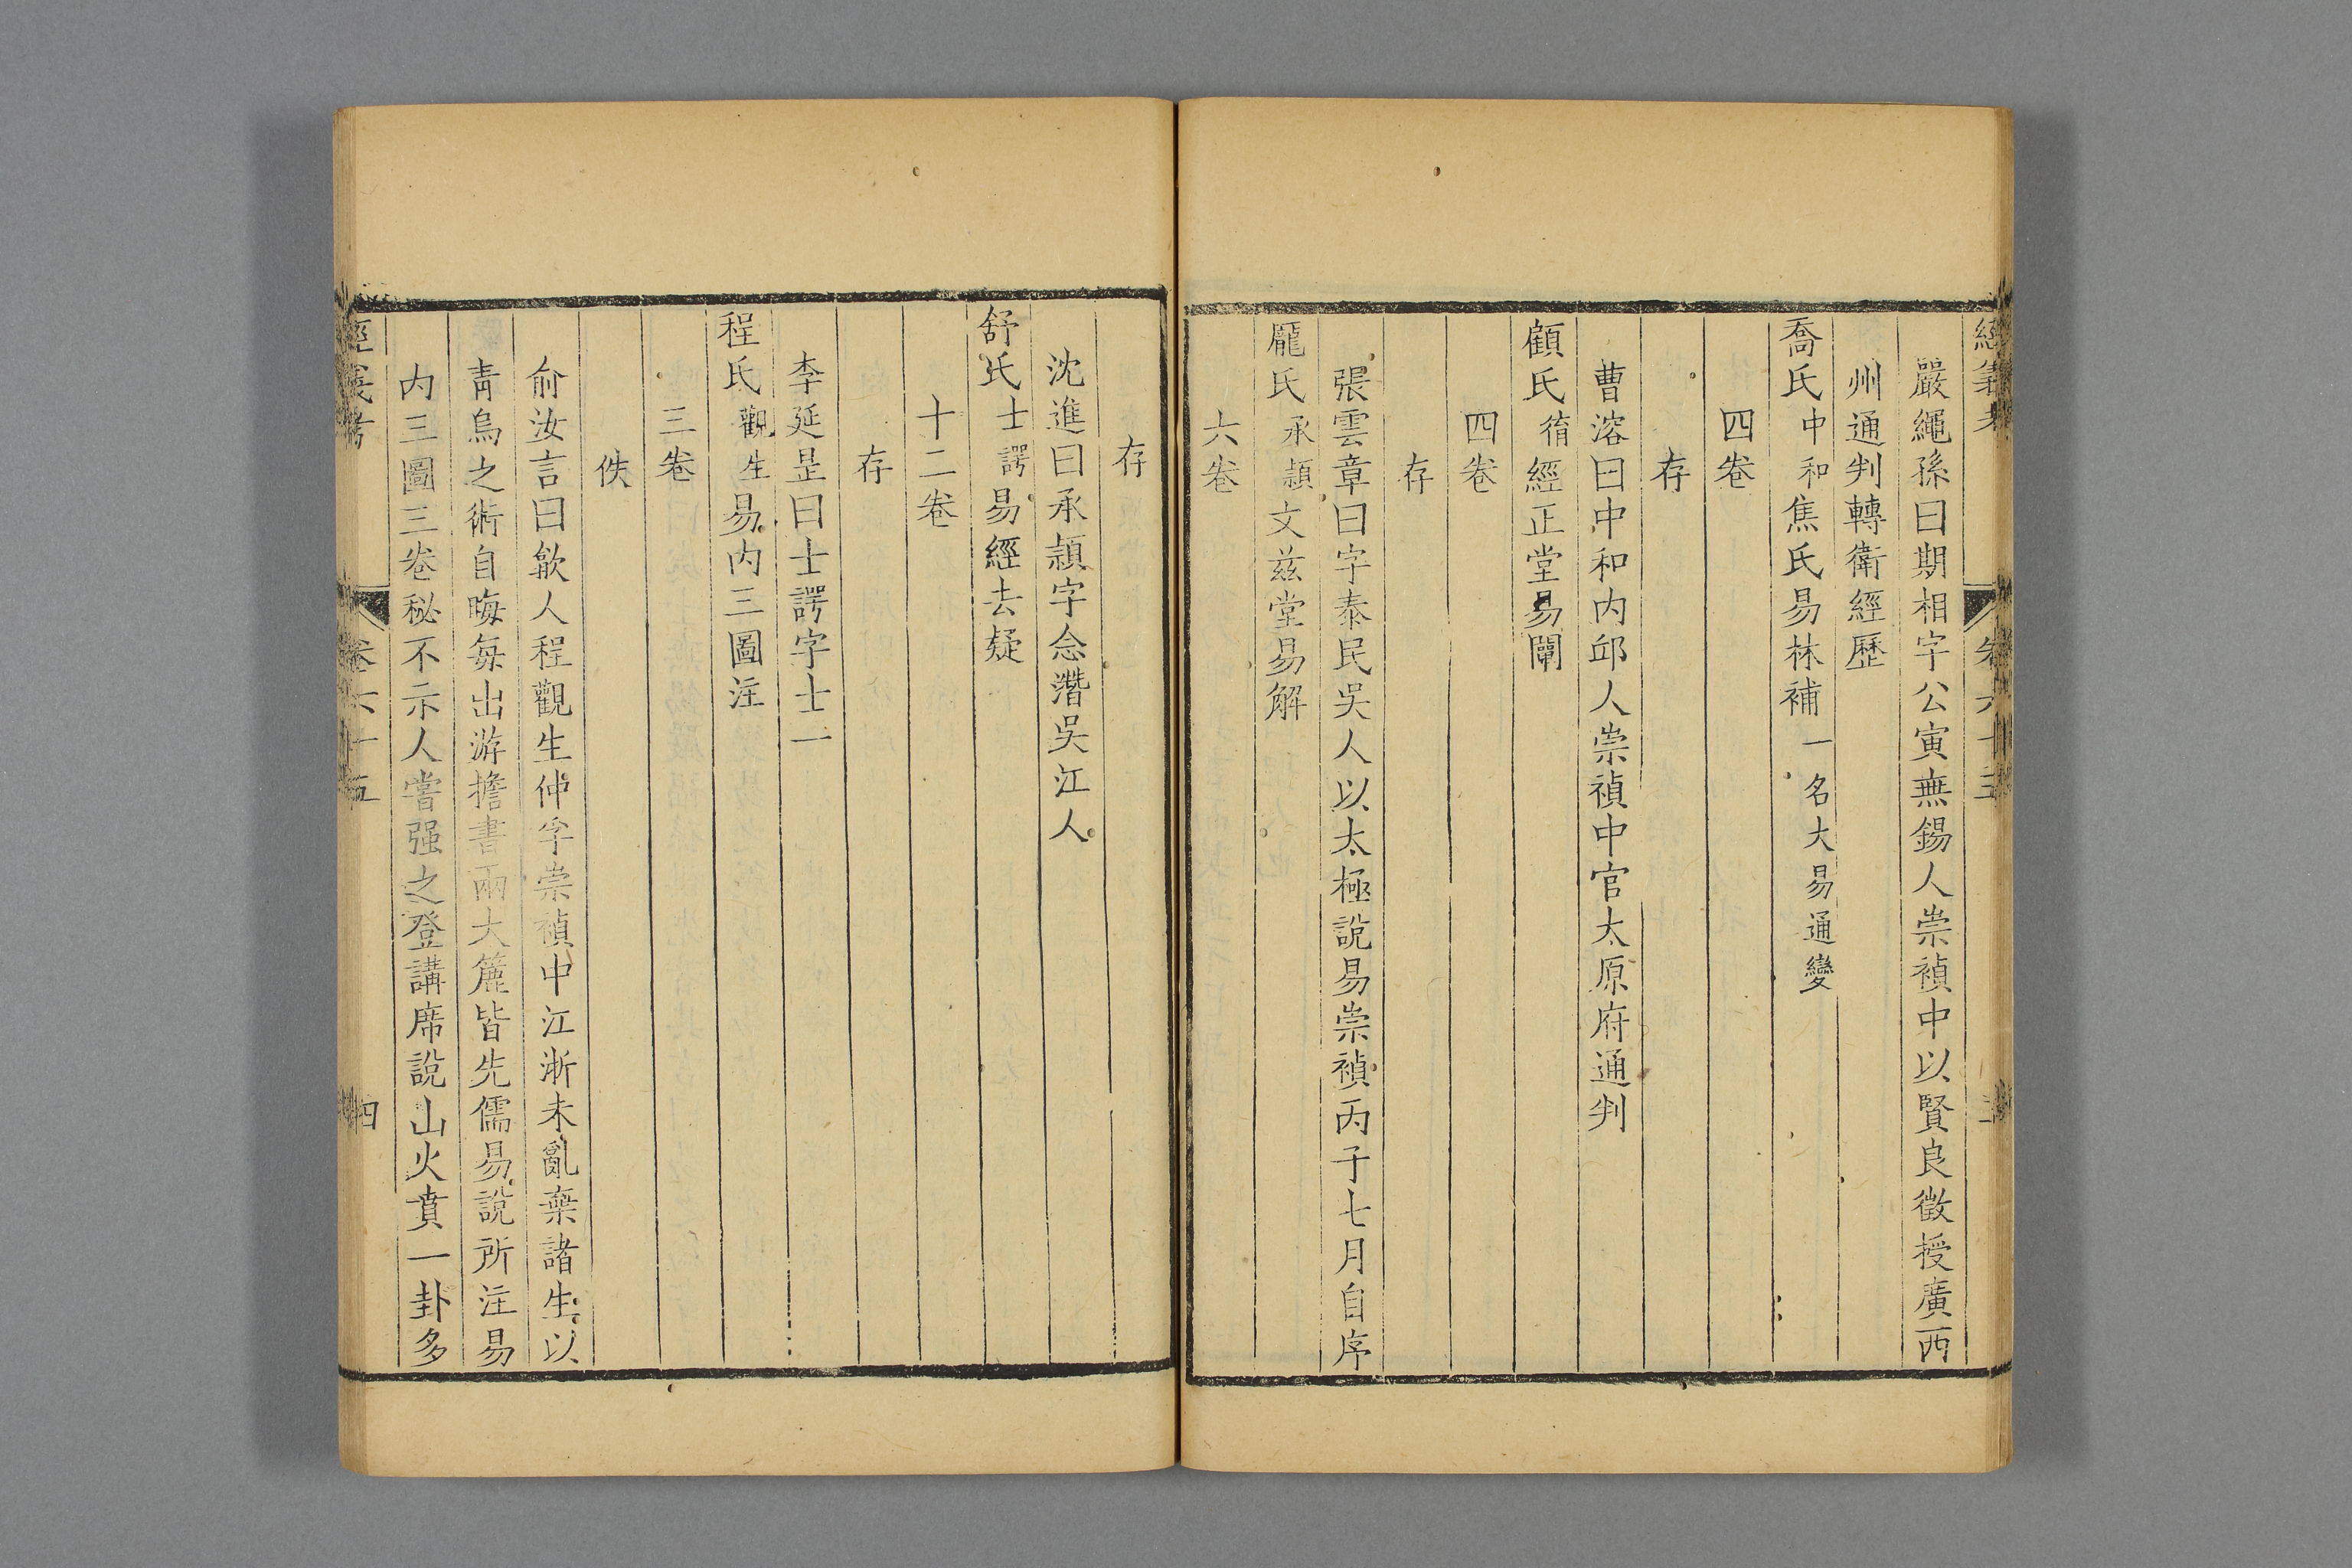 嚴繩孫曰期相字公寅無錫人崇禎中以賢良徵授廣西
州通判轉衛經歷
喬氏中和焦氏易林補一名大易通變
四卷
存
曹溶曰中和内邱人崇禎中官太原府通判
顧氏脩經正堂易闡
四卷
存
張雲章曰字泰民吳人以太極說易崇禎丙子七月自序
龎氏承頴文兹堂易解
六卷
存
沈進曰承頴字念潛吳江人
舒氏士諤易經去疑
十二卷
存
李延昰曰士諤字士一
程氏觀生易内三圖注
三卷
佚
俞汝言曰歙人程觀生仲孚崇禎中江浙未亂棄諸生以
青烏之術自晦每出游擔書兩大簏皆先儒易說所注易
内三圖三卷秘不示人嘗强之登講席說山火賁一卦多
經義考
卷六十五
四